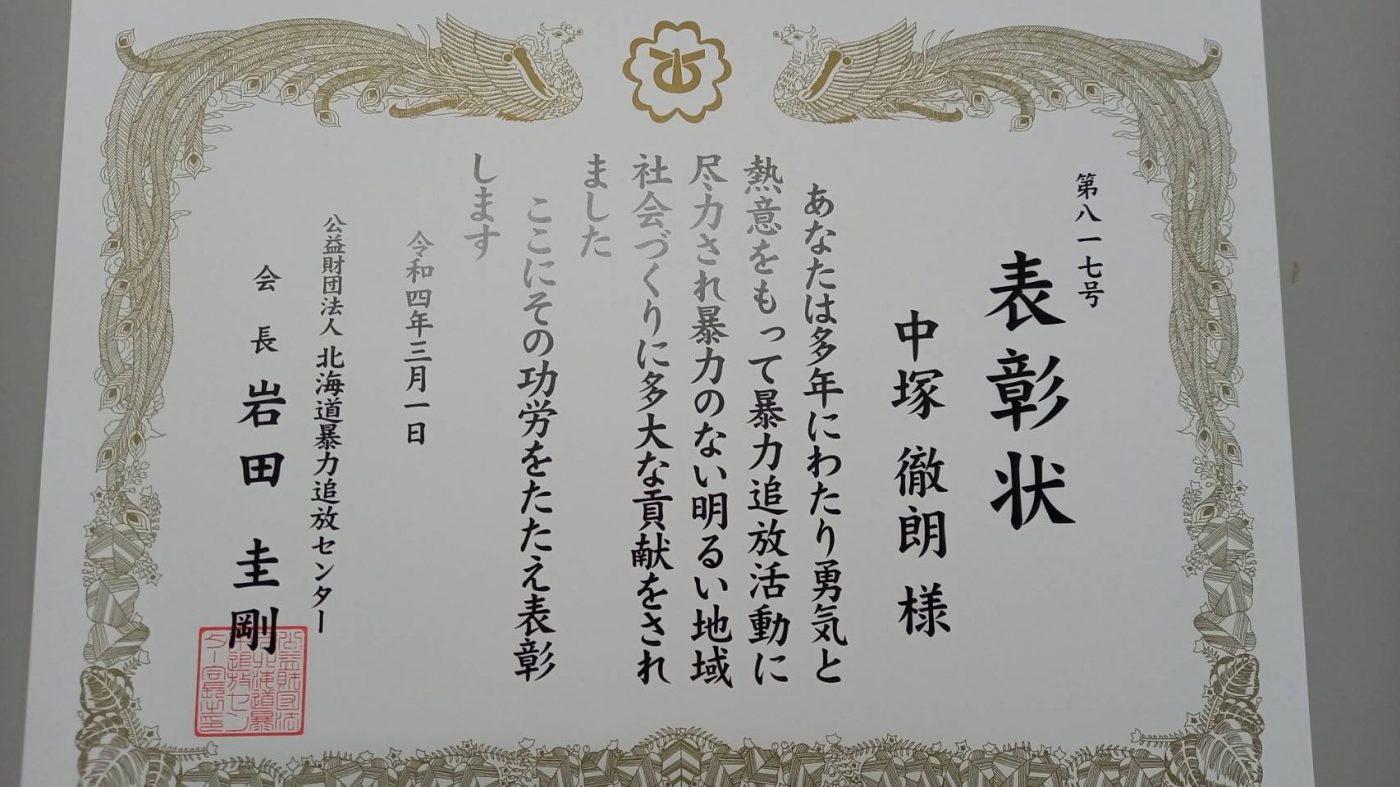 第八一七号
表彰状
中塚徹朗様
あなたは多年にわたり勇気と
熱意をもって暴力追放活動に
尽力され暴力のない明るい地域
社会づくりに多大な貢献をされ
ました
ここにその功労をたたえ表彰
します
令和四年三月一日
公益財団法人 北海道暴力追放センター
会長 岩田圭剛
公益財団法
人北海道暴
力追放セン
ター会長之印